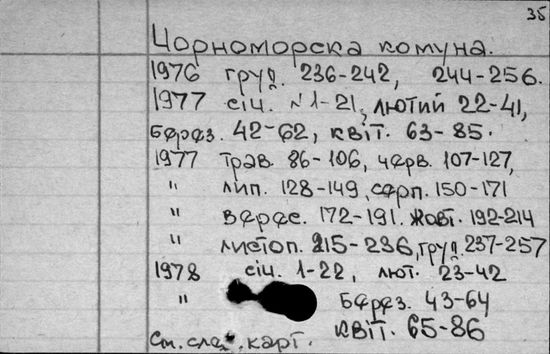 35
Чорноморска комуна.
1976 груд. 236-242, 244-256.
1977 січ. №1-21, лютий 22-41,
берез. 42-62, квіт. 63-85.
1977 трав. 86-106, черв. 107-127,
" лип. 128-149, серп. 150-171
" верес. 172-191. жовт. 192-214
" листоп. 215-236, груд. 237-257
1978 січ. 1-22, лют. 23-42
" берез. 43-64
квіт. 65-86
См. след. карт.